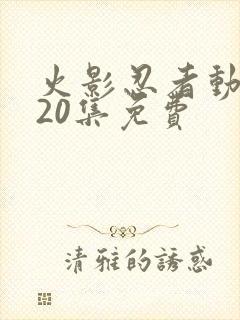 火影忍者動
20集免費
清雅的誘惑